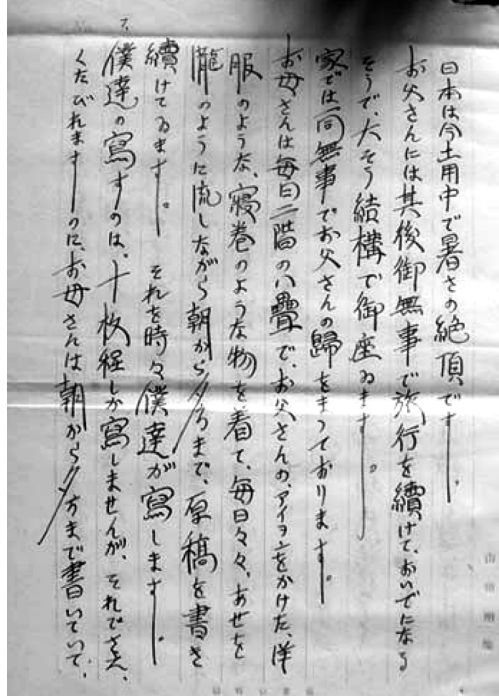 日本は今土用中で暑さの絶頂です。
お父さんには其後御無事で旅行を續けておいでになる
そうで、大そう結構で御座ゐます。
家では一同無事でお父さんの歸をまっております。
お母さんは毎日二階の八疊で、お父さんの、アイヨンをかけた、洋
服のような、寝巻のような物を着て、毎日々々、あせを
瀧のように流しながら朝から夕方まで、原稿を書き
續けてゐます。 それを時々僕達が寫します。
僕達の寫すのは、十枚程しか寫しませんが、それでさえ、
くたびれますのに、お母さんは朝から夕方まで書いていて、